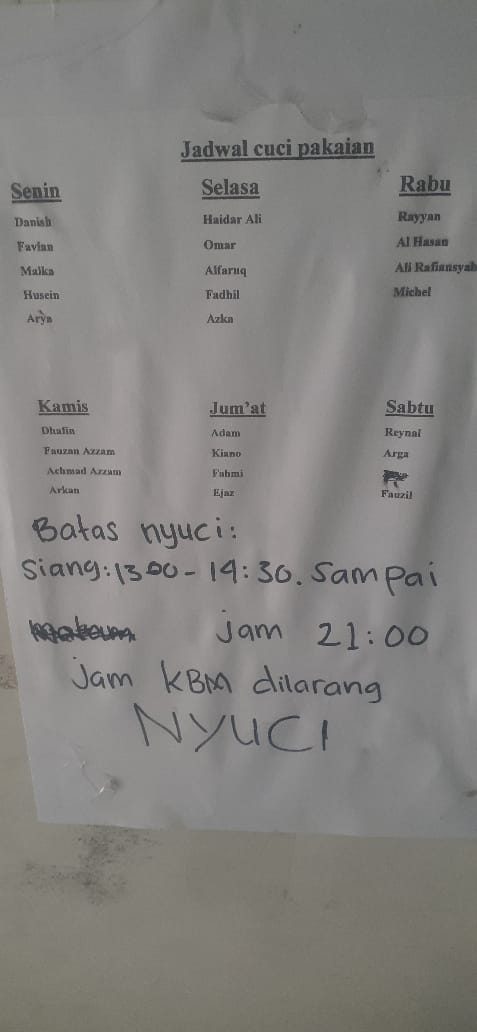 Jadwal cuci pakaian
Senin Selasa Rabu
Danish Haidar Ali Rayyan
Favian Omar Al Hasan
Malka Alfaruq Ali Rafiansyah
Husein Fadhil Michel
Arya Azka
Kamis Jum'at Sabtu
Dhafin Adam Reynal
Fauzan Azzam Kiano Arga
Achmad Azzam Fahmi
Arkan Ejaz Fauzil
Batas nyuci:
Siang: 13.00 - 14:30. Sampai
jam 21:00
jam KBM dilarang
NYUCI